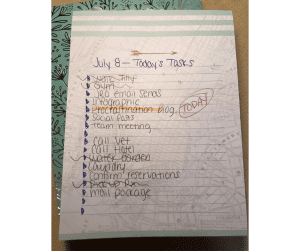 July 8 - Today's Tasks
Gym
3rd email sends
infographic
Procrastination blog TODAY
Social Posts
Team meeting
call vet
call Hotel
water garden
Laundry
Confirm reservations
Pick up Rx
mail package